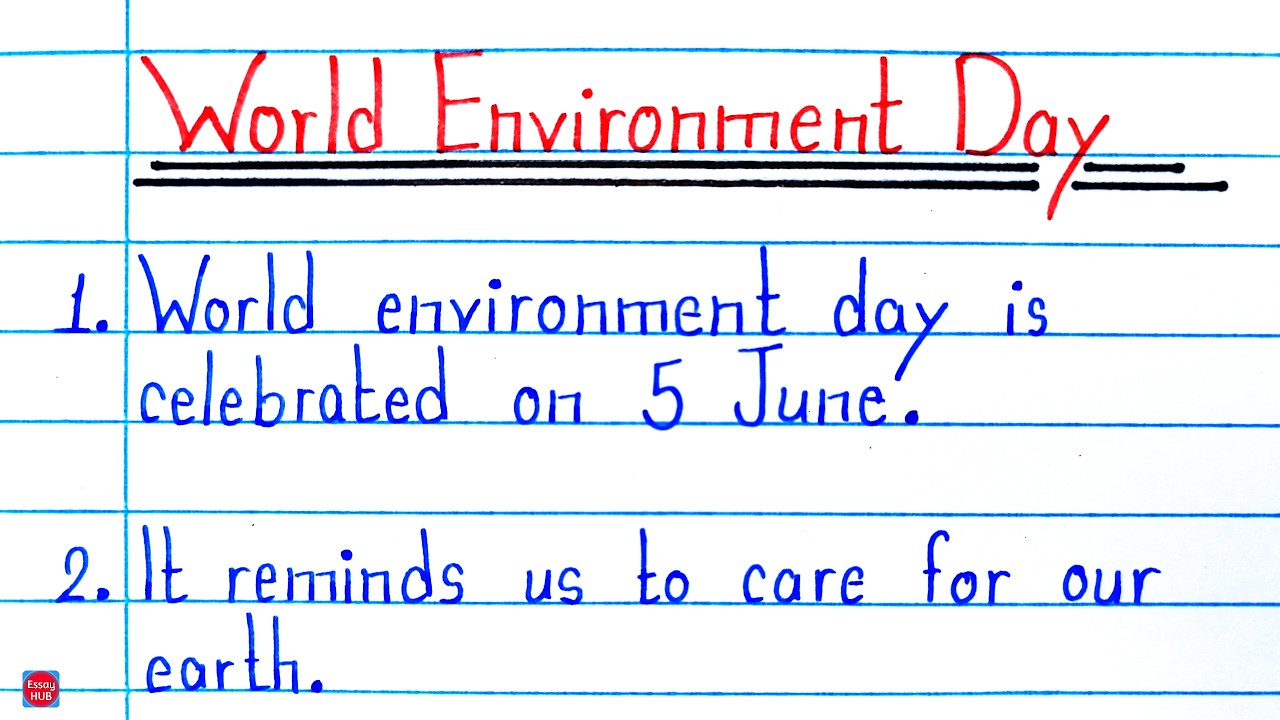 World Environment Day
1. World environment day is
celebrated on 5 June.
2. It reminds us to care for our
earth.
Essay
HUB